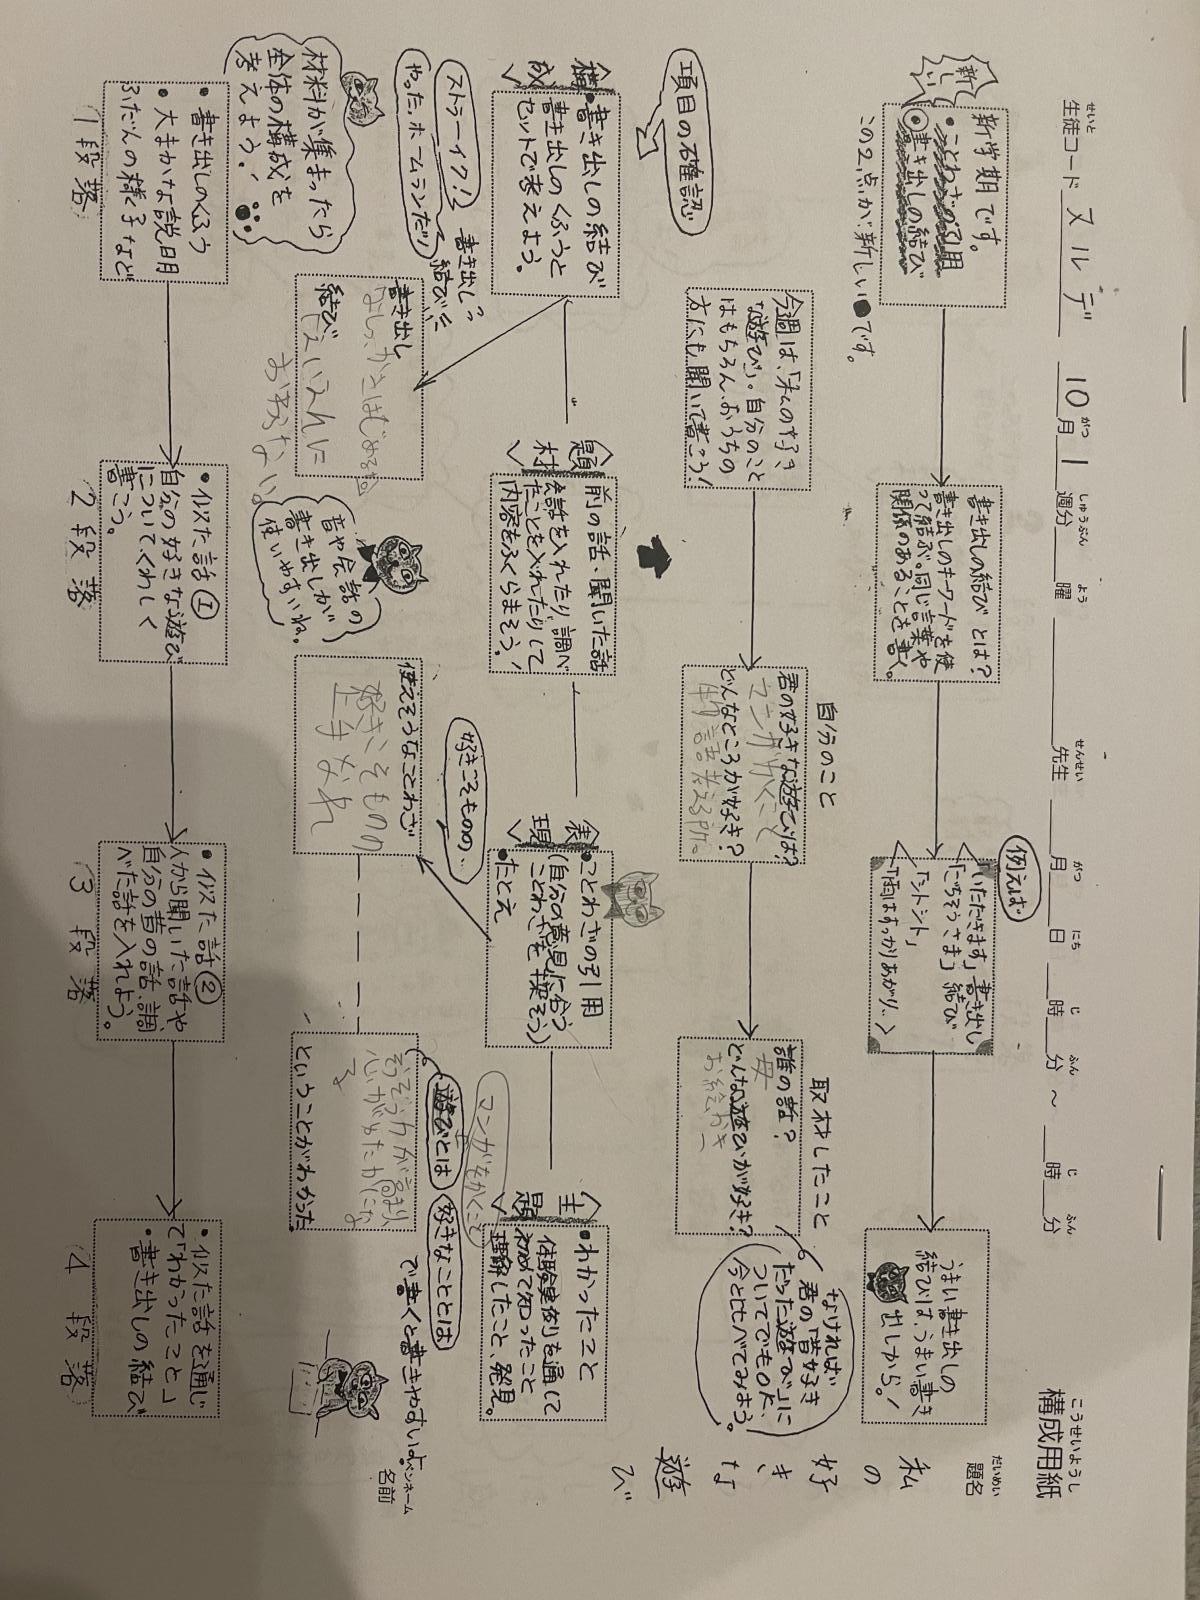 構成用紙
こうせいようし
生徒コード スルデ 10月1週分 曜 先生 月 日 時 分 ~ 時 分
せいと がつ しゅうぶん よう せんせい がつ にち じ ふん じ ふん
題名
だいめい
私の好きな遊び
ペンネーム
名前
新しい
新学期です。
・ことわざの引用
◎書き出しの結び
この2点が新しい●です。
書き出しの結びとは?
書き出しのキーワードを使
って結ぶ。同じ言葉や
関係のあることを書く。
例えば
「いただきます」書き出し
「ごちそうさま」結び
「シトシト」
「雨はすっかりあがり、
うまい書き出しの
結びは、うまい書き
出しから!
今週は、「私の好き
な遊び」。自分のこと
はもちろん、おうちの
方にも聞いて書こう!
自分のこと
君の好きな遊びは?
マンガかくこと
どんなところが好き?
物語考える所。
取材したこと
誰の話?
母
どんな遊びが好き?
お絵かき
なければ
君の「昔好き
だった遊び」に
ついてでもOK、
今と比べてみよう。
項目の確認
構成
・書き出しの結び
書き出しのくふうと
セットで考えよう。
題材
前の話・聞いた話
会話を入れたり調べ
たことを入れたりして
内容をふくらまそう!
表現
・ことわざの引用
(自分の意見に合う
ことわざを探そう)
・たとえ
主題
・わかったこと
体験実例を通して
初めて知ったこと
理解したこと、発見。
ストラーイク!! 書き出し?
やった。ホームランだ!) 結び!!
書き出し
結び
えいえんに
おわらない。
好きこそものの…
使えそうなことわざ
好きこそものの
上手なれ
マンガをかくこと
遊びとは
好きなこととは
で書くと書きやすいよ。
そうぞう力が高まり
心がゆたかにな
る
ということがわかった。
材料が集まったら
全体の構成を
考えよう!
音や会話の
書き出しが
使いやすいね。
・書き出しのくふう
・大まかな説明
ふだんの様子など
1段落
・似た話①
自分の好きな遊び
についてくわしく
書こう。
2段落
・似た話②
人から聞いた話や、
自分の昔の話、調
べた話を入れよう。
3段落
・似た話を通じ
て「わかったこと」
・書き出しの結び
4段落